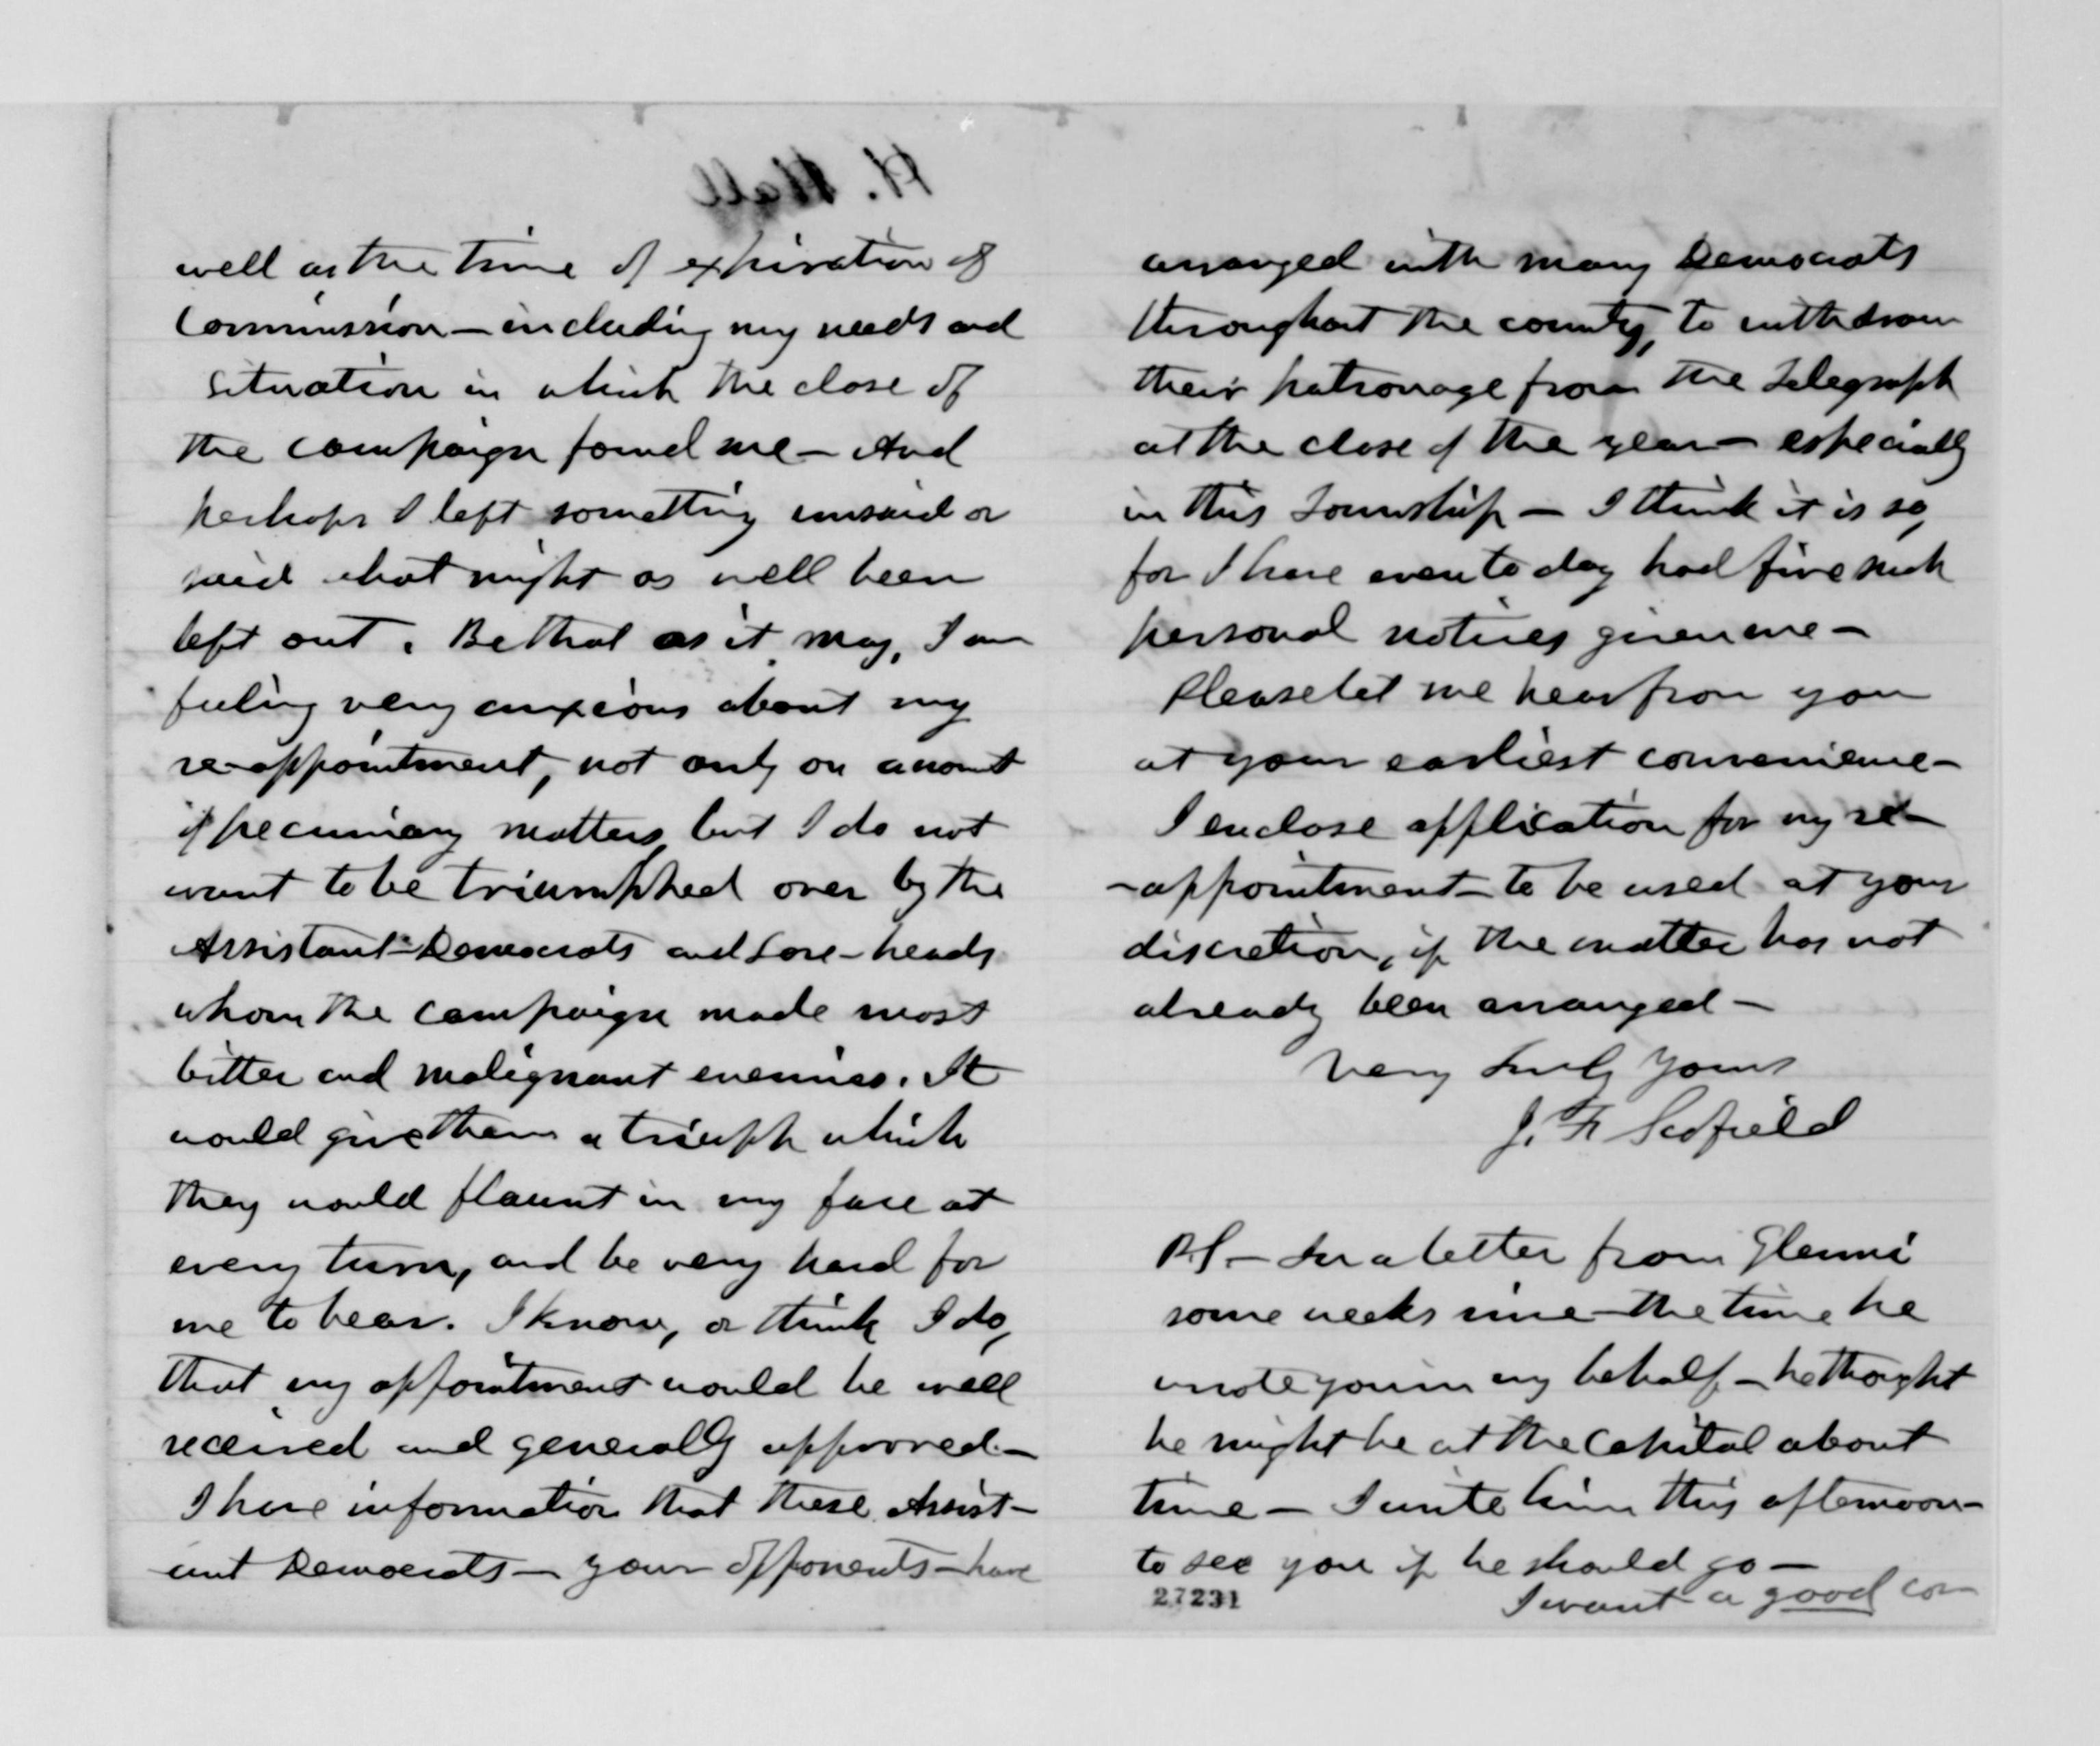 H. Hall
well as the time of expiration of
Commission — including my needs and
situation in which the close of
the campaign found me — And
perhaps I left something unsaid or
said what might as well been
left out. Be that as it may, I am
feeling very anxious about my
re-appointment, not only on account
of pecuniary matters, but I do not
want to be triumphed over by the
Assistant-Democrats and Sore-heads
whom the campaign made most
bitter and malignant enemies. It
would give them a triuph which
they would flaunt in my face at
every turn, and be very hard for
me to bear. I know, or think I do,
that my appointment would be well
received and generally approved. —
I have information that these Assist-
ant Democrats — your opponents — have
arranged with many Democrats
throughout the county, to withdraw
their patronage from the Telegraph
at the close of the year — especially
in this Township — I think it is so,
for I have even to day had five such
personal notices given me —
Please let me hear from you
at your earliest convenience —
I enclose application for my re-
-appointment — to be used at your
discretion, if the matter has not
already been arranged —
Very Truly Yours
J. F. Scofield
P.S. — In a letter from Glenni
some weeks since — the time he
wrote you in my behalf — he thought
he might be at the Capital about
time — I write him this afternoon —
to see you if he should go —
I want a good con
27231